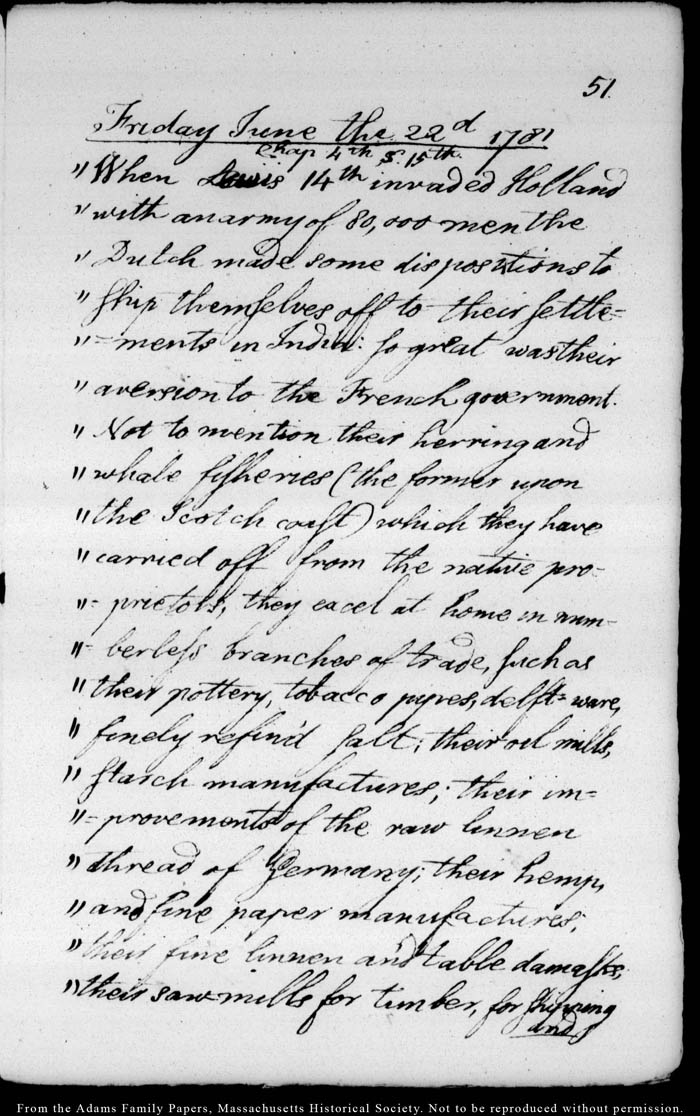 51.
Friday June the 22d 1781
Chap 4th S. 15th.
" When Lewis 14th invaded Holland
" with an army of 80,000 men the
" Dutch made some dispositions to
" ship themselves off to their settle=
" =ments in India: so great was their
" aversion to the French government.
" Not to mention their herring and
" whale fisheries (the former upon
" the Scotch coast) which they have
" carried off from the native pro=
" =prietors, they excel at home in num=
" =berless branches of trade, such as
" their pottery, tobacco pypes, delft=ware,
" finely refin'd salt; their oil mills,
" starch manufactures; their im=
" =provements of the raw linnen
" thread of Germany; their hemp,
" and fine paper manufactures;
" their fine linnen and table damasks;
" their saw=mills for timber, for shipping
and
From the Adams Family Papers, Massachusetts Historical Society. Not to be reproduced without permission.